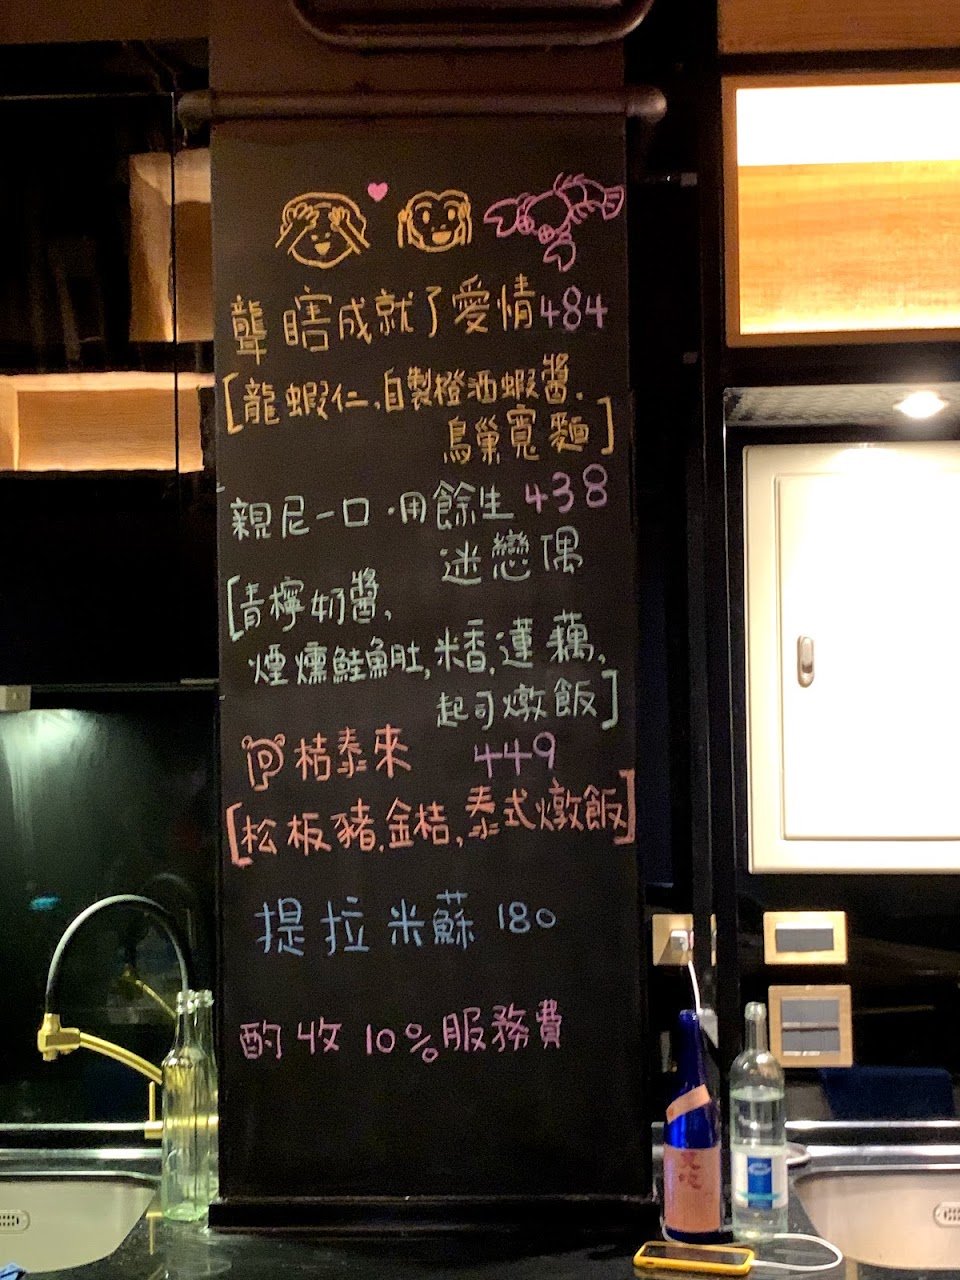 聾瞎成就了愛情484
[龍蝦仁,自製橙酒蝦醬.
鳥巢寬麵]
親尼一口.用餘生438
迷戀偶
[青檸奶醬,
煙燻鮭魚肚,米香,蓮藕,
起司燉飯]
P桔泰來 449
[松板豬,金桔,泰式燉飯]
提拉米蘇 180
酌收10%服務費